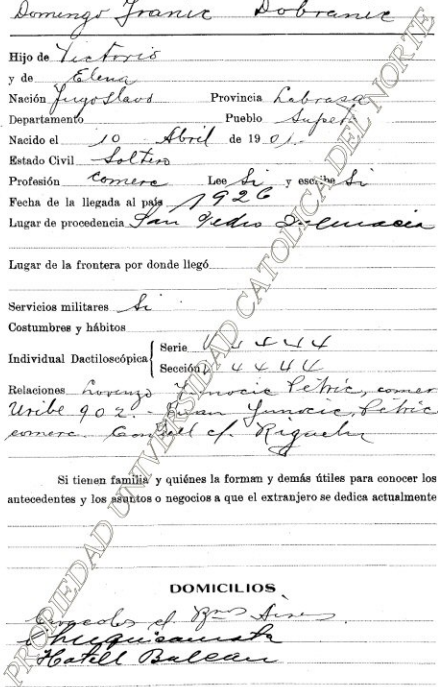 Domingo Franic Dobranic
Hijo de Victorio
y de Elena
Nación Jugoslavo Provincia
Departamento Pueblo Supetar
Nacido el 10 Abril de 1901.
Estado Civil Soltero
Profesión comerc Lee Si y escribe Si
Fecha de la llegada al país 1926
Lugar de procedencia San Pedro Dalmacia
Lugar de la frontera por donde llegó
Servicios militares Si
Costumbres y hábitos
Individual Dactiloscópica { Serie 4444
Sección 4444
Relaciones Lorenzo Petric, comer
Uribe 902. - Juan Petric
comerc. Condell c/. Riquelm
Si tienen familia y quiénes la forman y demás útiles para conocer los
antecedentes y los asuntos o negocios a que el extranjero se dedica actualmente
DOMICILIOS
c/. Bnos Aires
Chuquicamata
Hotell Balcan
PROPIEDAD UNIVERSIDAD CATOLICA DEL NORTE